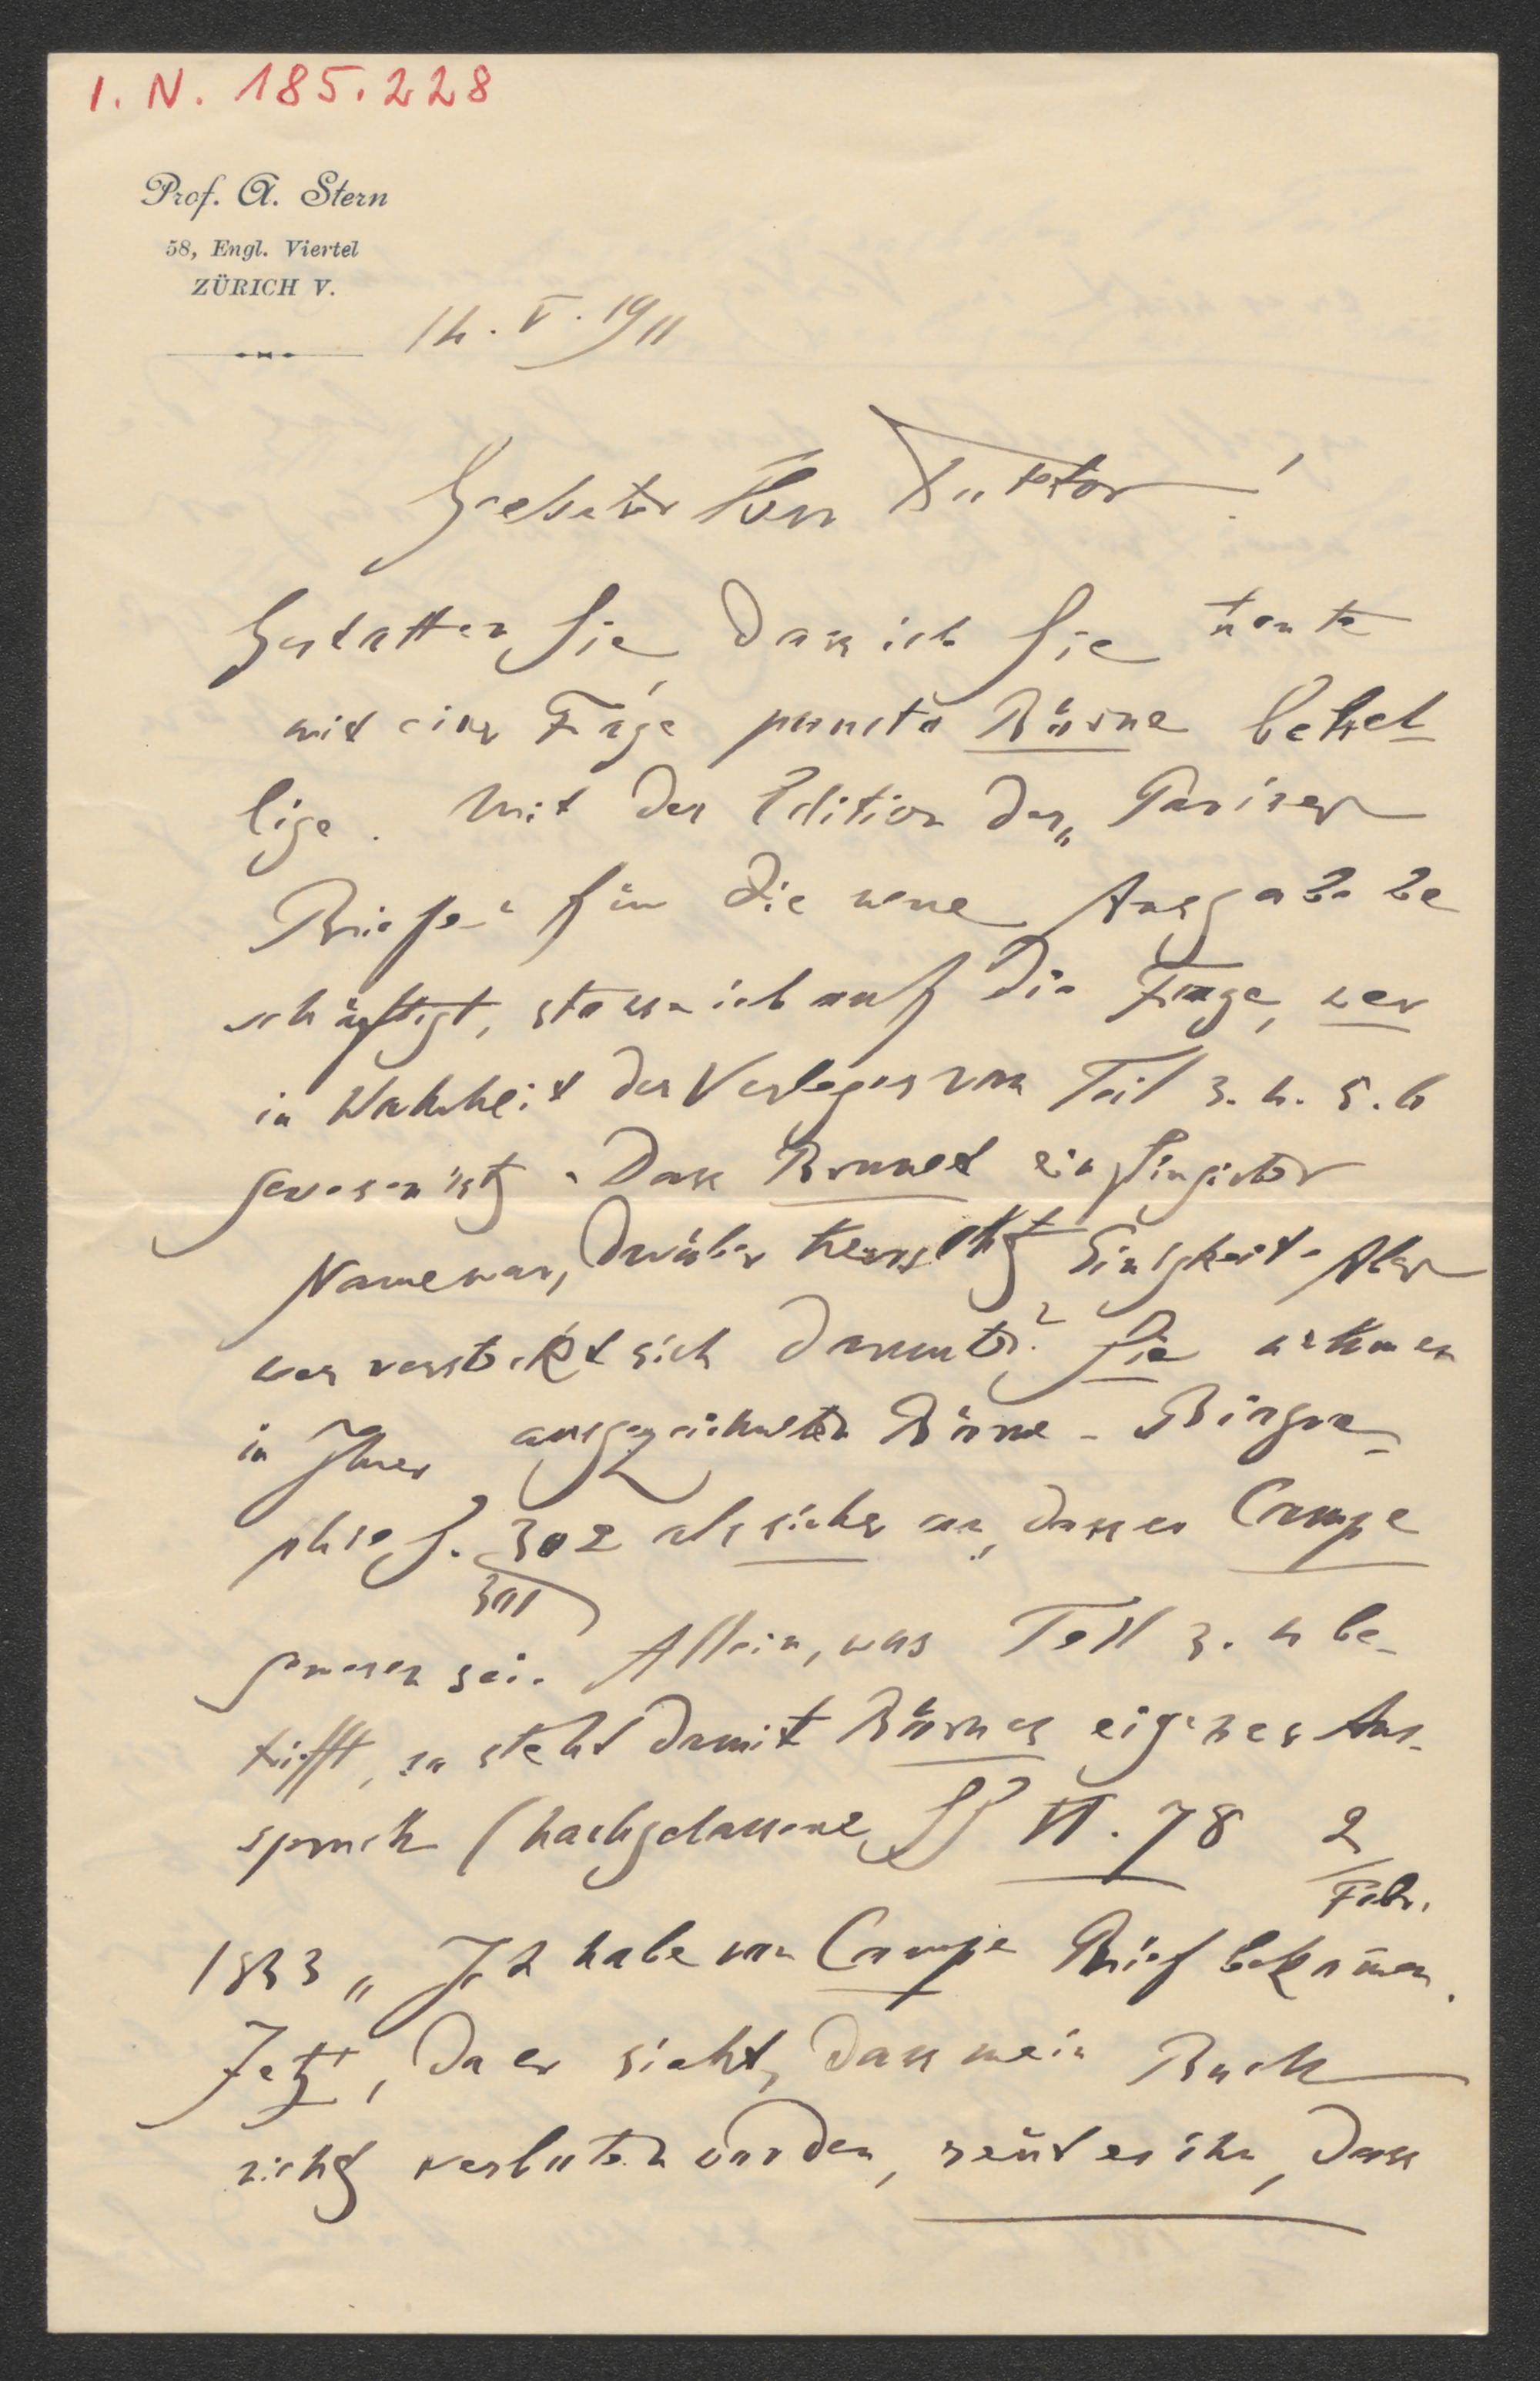 I. N. 185.228
Prof. A. Stern
58, Engl. Viertel
ZÜRICH V.
14. V. 1911
Geehrter Herr Doktor!
Gestatten Sie dass ich Sie heute
mit einer Frage puncto Börne behel-
lige. Mit der Edition der „Pariser
Briefe“ für die neue Ausgabe be
schäftigt, stosse ich auf die Frage, wer
in Wahrheit der Verleger von Teil 3. 4. 5. 6
gewesen ist. Dass Brunet ein fingierter
Name war, darüber herrscht Einigkeit. Aber
wer versteckt sich darunter? Sie nehmen
in Ihrer ausgezeichneten Börne-Biogra-
phie S. 302 als sicher an, dass es Campe
301
gewesen sei. Allein, was Teil 3. 4 be-
trifft, so steht damit Börnes eigener Aus-
spruch (Nachgelassene SS VI. 78 2
Febr.
1833 „Ich habe von Campe Brief bekom̄en.
Jetzt, da er sieht, dass mein Buch
nicht verboten worden, reut es ihn, dass